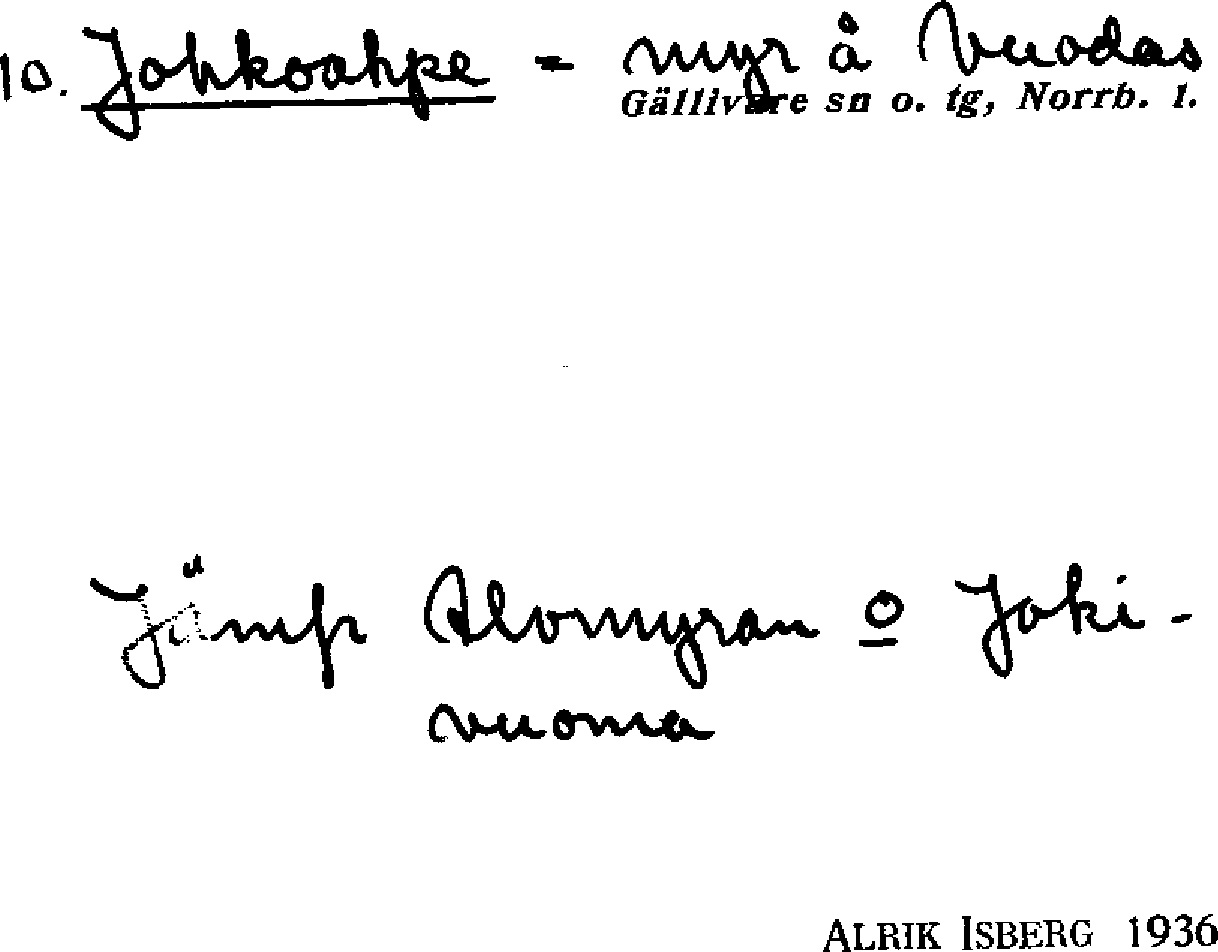 10. Johkoahpe - myr å Vuodas
Gällivare sn o. tg, Norrb. l.
Jämf Alvomyran o Joki-
vuoma
ALRIK ISBERG 1936